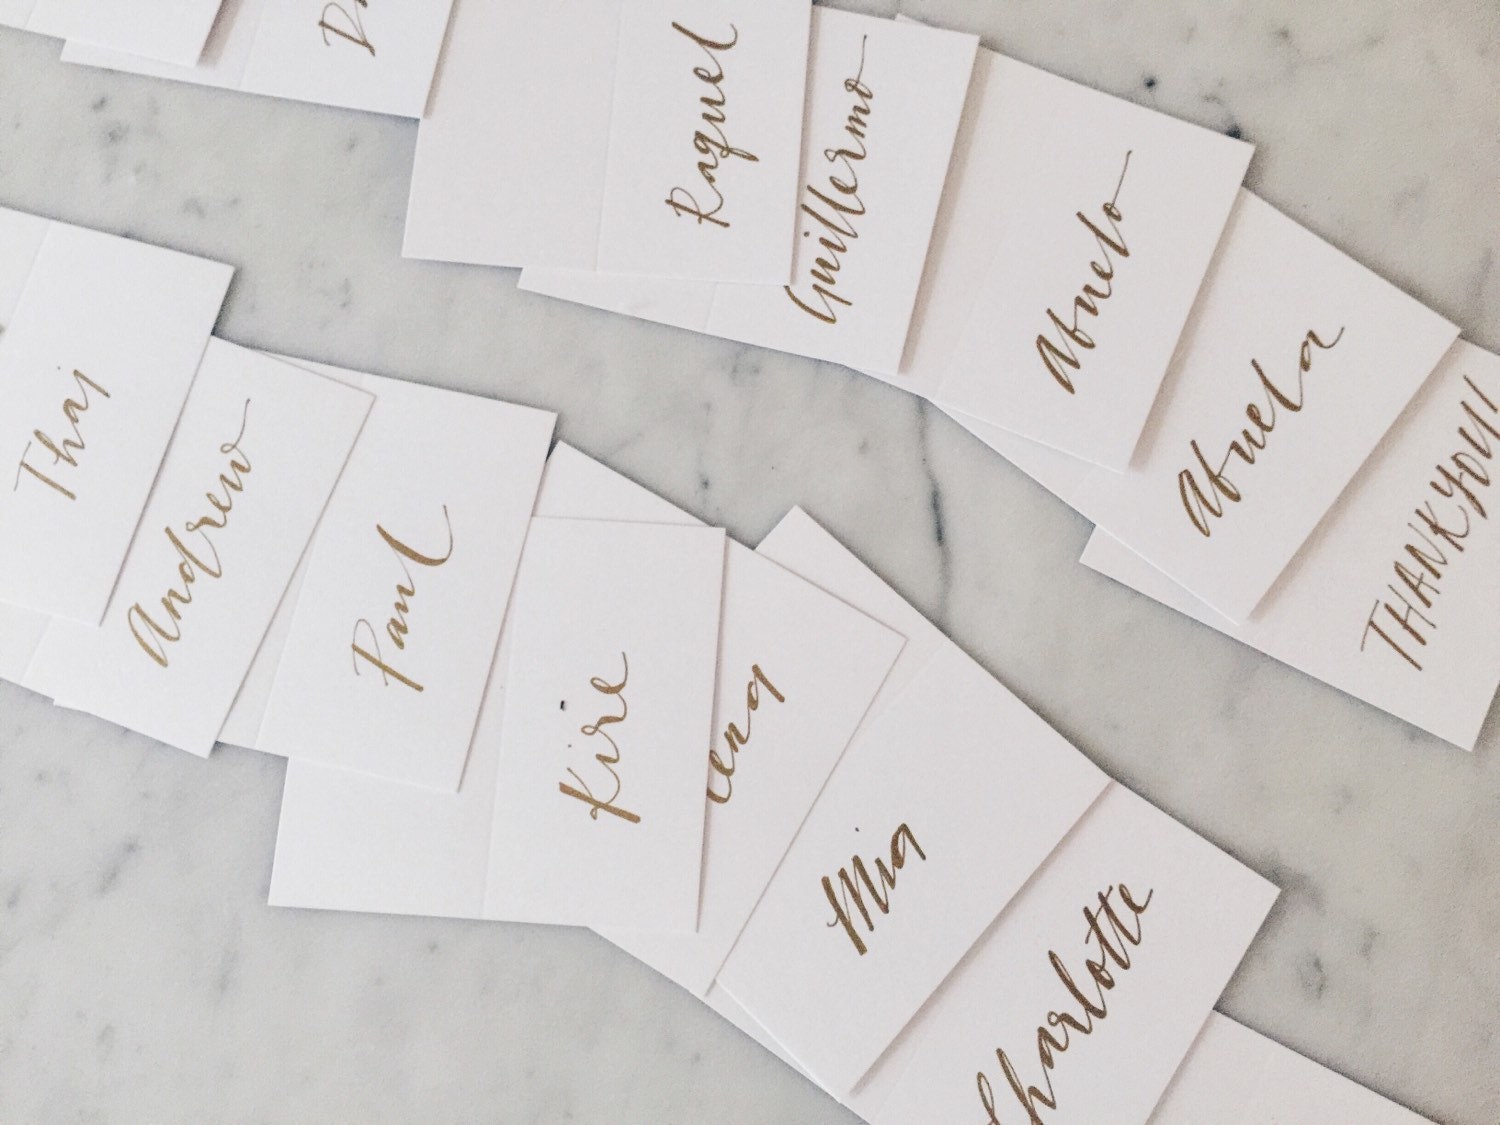 Raquel
Guillermo
Abuelo
Abuela
THANKYOU!
Thaj
Andrew
Paul
Kire
Mia
Charlotte